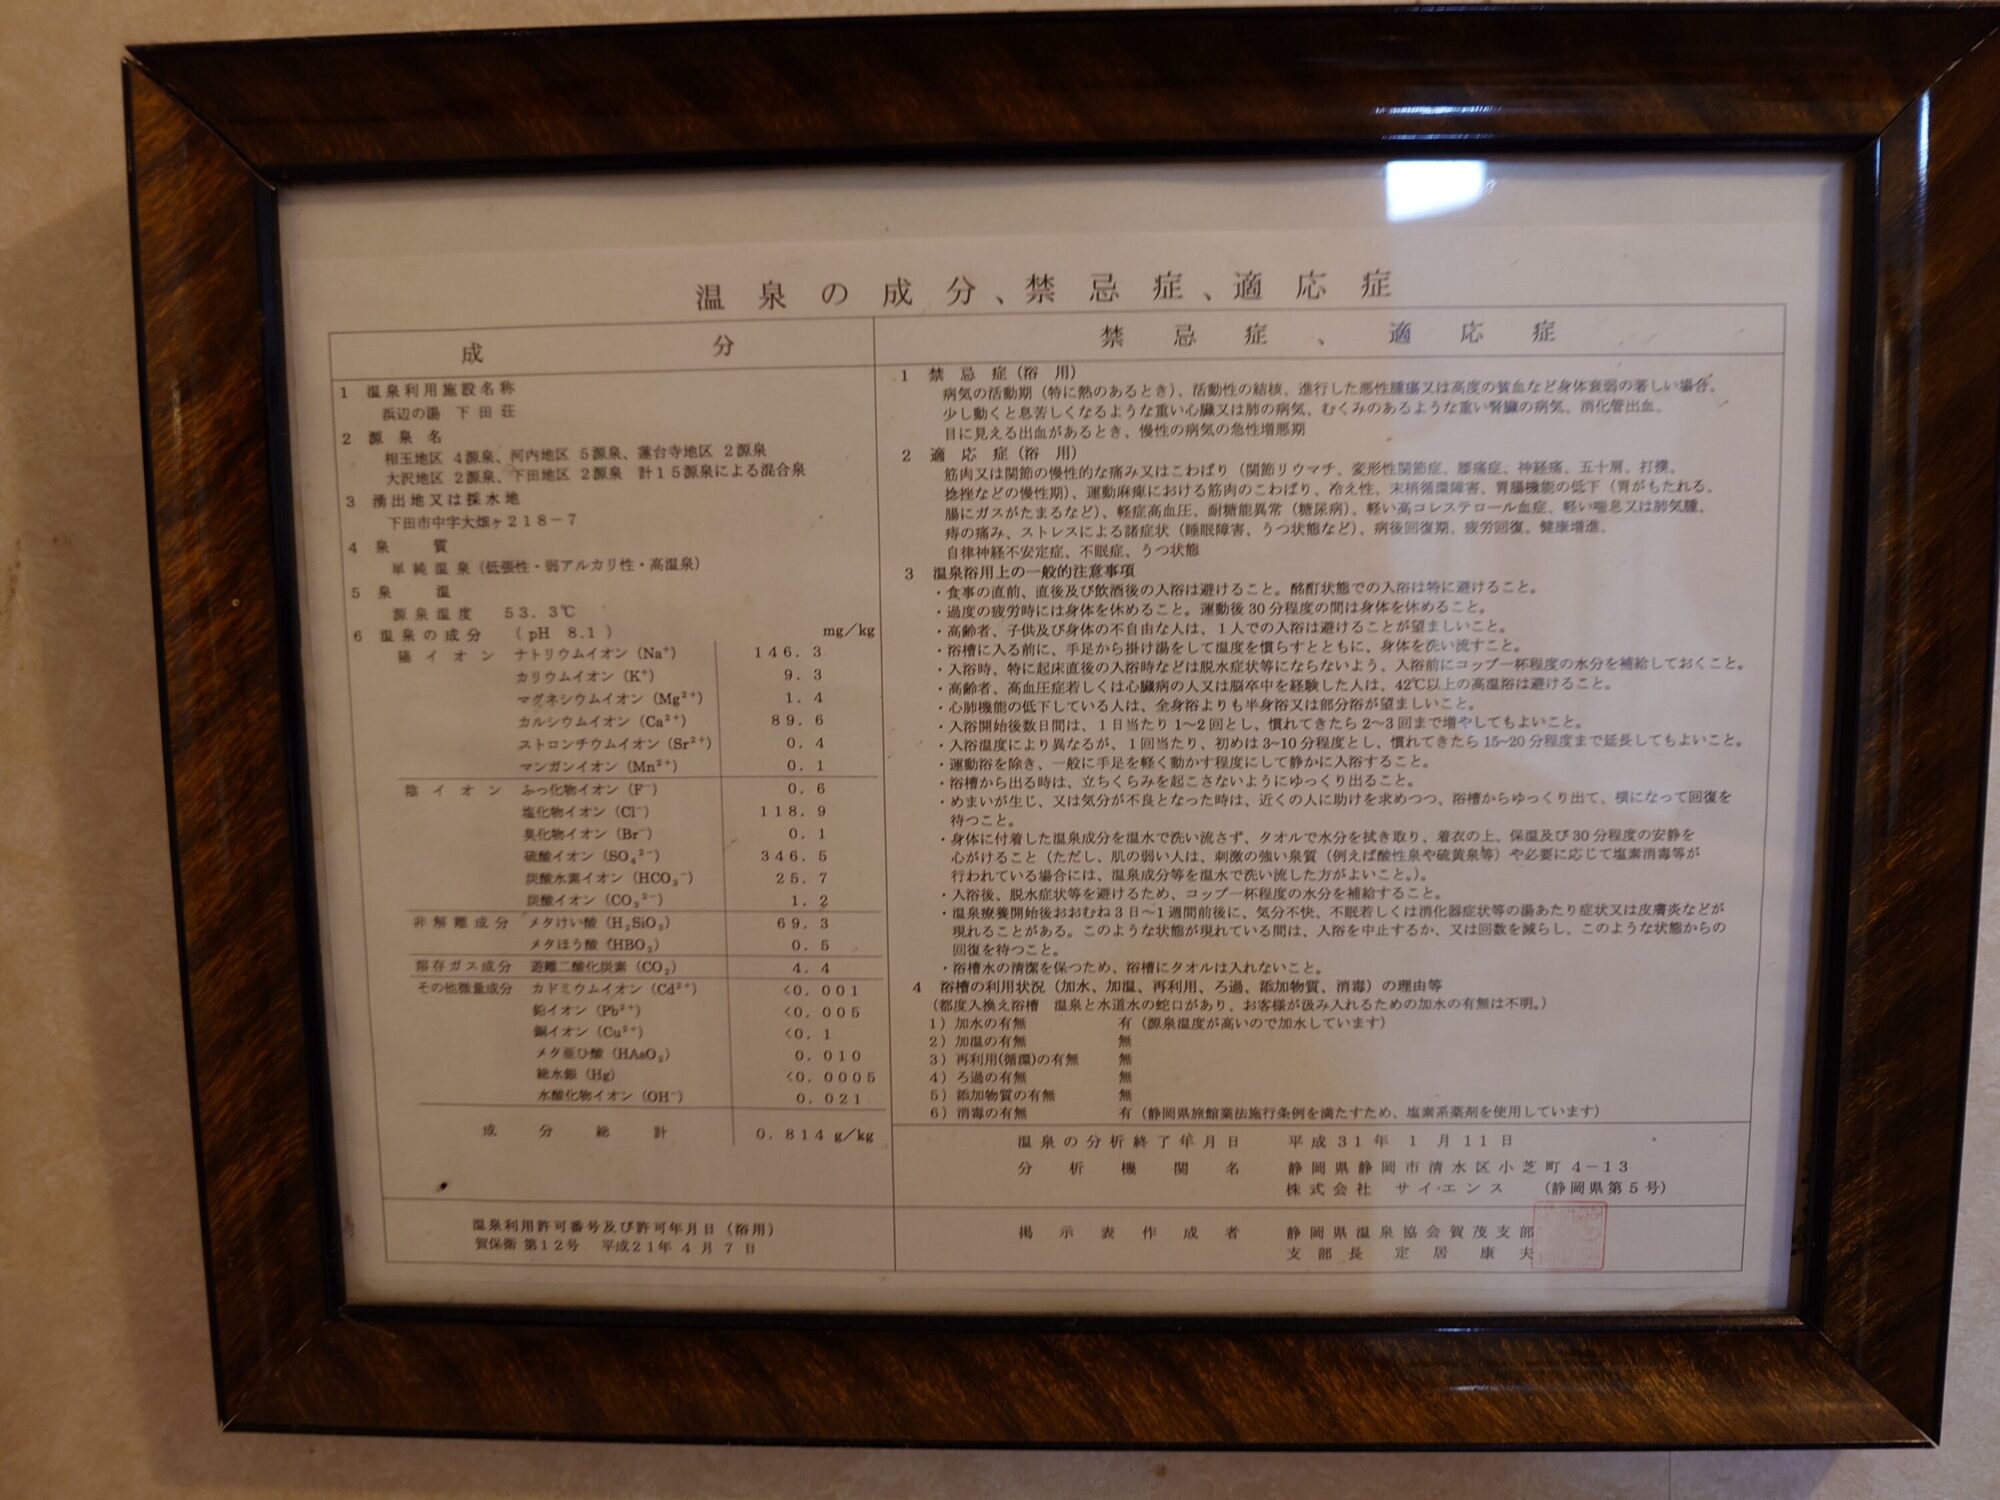 温泉の成分、禁忌症、適応症
成分
1 温泉利用施設名称
浜辺の湯 下田荘
2 源泉名
相玉地区 4源泉、河内地区 5源泉、蓮台寺地区 2源泉
大沢地区 2源泉、下田地区 2源泉 計15源泉による混合泉
3 湧出地又は採水地
下田市中字大畑ヶ218-7
4 泉質
単純温泉(低張性・弱アルカリ性・高温泉)
5 泉温
源泉温度 53.3℃
6 温泉の成分 (pH 8.1) mg/kg
陽イオン ナトリウムイオン(Na⁺) 146.3
カリウムイオン(K⁺) 9.3
マグネシウムイオン(Mg²⁺) 1.4
カルシウムイオン(Ca²⁺) 89.6
ストロンチウムイオン(Sr²⁺) 0.4
マンガンイオン(Mn²⁺) 0.1
陰イオン ふっ化物イオン(F⁻) 0.6
塩化物イオン(Cl⁻) 118.9
臭化物イオン(Br⁻) 0.1
硫酸イオン(SO₄²⁻) 346.5
炭酸水素イオン(HCO₃⁻) 25.7
炭酸イオン(CO₃²⁻) 1.2
非解離成分 メタけい酸(H₂SiO₃) 69.3
メタほう酸(HBO₂) 0.5
溶存ガス成分 遊離二酸化炭素(CO₂) 4.4
その他微量成分 カドミウムイオン(Cd²⁺) <0.001
鉛イオン(Pb²⁺) <0.005
銅イオン(Cu²⁺) <0.1
メタ亜ひ酸(HAsO₂) 0.010
総水銀(Hg) <0.0005
水酸化物イオン(OH⁻) 0.021
成分総計 0.814 g/kg
温泉利用許可番号及び許可年月日(浴用)
賀保衛 第12号 平成21年 4月 7日
禁忌症、適応症
1 禁忌症(浴用)
病気の活動期(特に熱のあるとき)、活動性の結核、進行した悪性腫瘍又は高度の貧血など身体衰弱の著しい場合、
少し動くと息苦しくなるような重い心臓又は肺の病気、むくみのあるような重い腎臓の病気、消化管出血、
目に見える出血があるとき、慢性の病気の急性増悪期
2 適応症(浴用)
筋肉又は関節の慢性的な痛み又はこわばり(関節リウマチ、変形性関節症、腰痛症、神経痛、五十肩、打撲、
捻挫などの慢性期)、運動麻痺における筋肉のこわばり、冷え性、末梢循環障害、胃腸機能の低下(胃がもたれる、
腸にガスがたまるなど)、軽症高血圧、耐糖能異常(糖尿病)、軽い高コレステロール血症、軽い喘息又は肺気腫、
痔の痛み、ストレスによる諸症状(睡眠障害、うつ状態など)、病後回復期、疲労回復、健康増進、
自律神経不安定症、不眠症、うつ状態
3 温泉浴用上の一般的注意事項
・食事の直前、直後及び飲酒後の入浴は避けること。酩酊状態での入浴は特に避けること。
・過度の疲労時には身体を休めること。運動後30分程度の間は身体を休めること。
・高齢者、子供及び身体の不自由な人は、1人での入浴は避けることが望ましいこと。
・浴槽に入る前に、手足から掛け湯をして温度を慣らすとともに、身体を洗い流すこと。
・入浴時、特に起床直後の入浴時などは脱水症状等にならないよう、入浴前にコップ一杯程度の水分を補給しておくこと。
・高齢者、高血圧症若しくは心臓病の人又は脳卒中を経験した人は、42℃以上の高温浴は避けること。
・心肺機能の低下している人は、全身浴よりも半身浴又は部分浴が望ましいこと。
・入浴開始後数日間は、1日当たり1~2回とし、慣れてきたら2~3回まで増やしてもよいこと。
・入浴温度により異なるが、1回当たり、初めは3~10分程度とし、慣れてきたら15~20分程度まで延長してもよいこと。
・運動浴を除き、一般に手足を軽く動かす程度にして静かに入浴すること。
・浴槽から出る時は、立ちくらみを起こさないようにゆっくり出ること。
・めまいが生じ、又は気分が不良となった時は、近くの人に助けを求めつつ、浴槽からゆっくり出て、横になって回復を
待つこと。
・身体に付着した温泉成分を温水で洗い流さず、タオルで水分を拭き取り、着衣の上、保温及び30分程度の安静を
心がけること(ただし、肌の弱い人は、刺激の強い泉質(例えば酸性泉や硫黄泉等)や必要に応じて塩素消毒等が
行われている場合には、温泉成分等を温水で洗い流した方がよいこと。)。
・入浴後、脱水症状等を避けるため、コップ一杯程度の水分を補給すること。
・温泉療養開始後おおむね3日~1週間前後に、気分不快、不眠若しくは消化器症状等の湯あたり症状又は皮膚炎などが
現れることがある。このような状態が現れている間は、入浴を中止するか、又は回数を減らし、このような状態からの
回復を待つこと。
・浴槽水の清潔を保つため、浴槽にタオルは入れないこと。
4 浴槽の利用状況(加水、加温、再利用、ろ過、添加物質、消毒)の理由等
(都度入換え浴槽 温泉と水道水の蛇口があり、お客様が汲み入れるための加水の有無は不明。)
1)加水の有無 有(源泉温度が高いので加水しています)
2)加温の有無 無
3)再利用(循環)の有無 無
4)ろ過の有無 無
5)添加物質の有無 無
6)消毒の有無 有(静岡県旅館業法施行条例を満たすため、塩素系薬剤を使用しています)
温泉の分析終了年月日 平成31年 1月11日
分析機関名 静岡県静岡市清水区小芝町4-13
株式会社 サイエンス (静岡県第5号)
掲示表作成者 静岡県温泉協会賀茂支部
支部長 定居 康夫